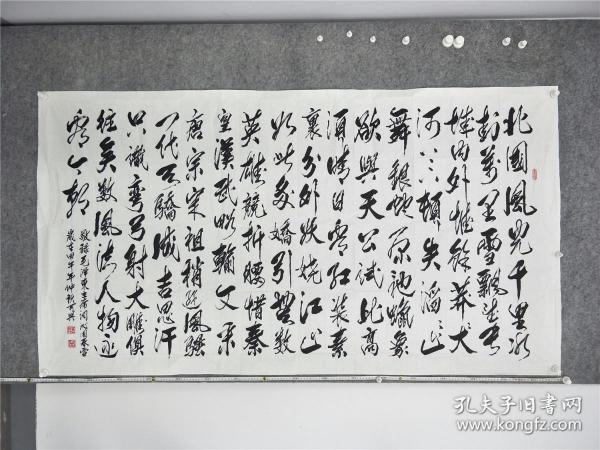 北國風光千里冰
封萬里雪飄望長
城内外惟餘莽々大
河上下頓失滔々山
舞銀蛇原馳蠟象
欲與天公試比高
須晴日看紅裝素
裹分外妖嬈江山
如此多嬌引無數
英雄競折腰惜秦
皇漢武略輸文采
唐宗宋祖稍遜風騷
一代天驕成吉思汗
只識彎弓射大雕俱
往矣數風流人物還
看今朝
敬錄毛澤東主席詞沁園春雪
歲在甲午年仲秋
孔夫子旧书网
www.kongfz.com